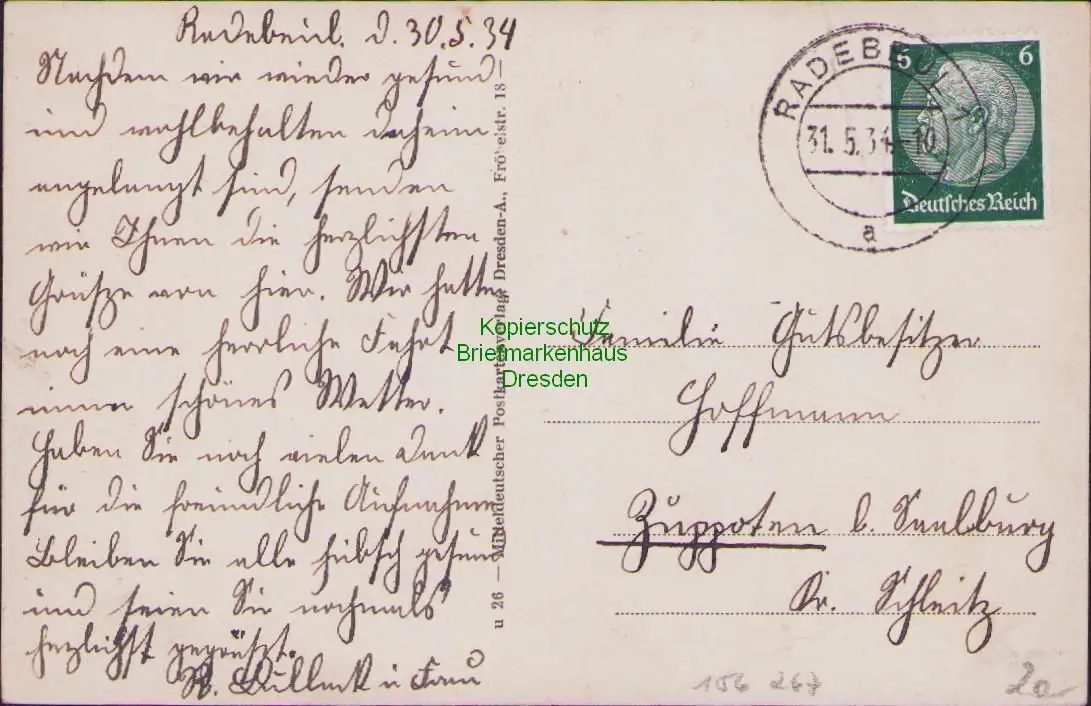 Radebeul. d. 30.5.34
Nachdem wir wieder gesund
und wohlbehalten daheim
angelangt sind, senden
wir Ihnen die herzlichsten
Grüsze von hier. Wir hatten
noch eine herrliche Fahrt
immer schönes Wetter.
Haben Sie noch vielen Dank
für die freundliche Aufnahme
Bleiben Sie alle hübsch gesund
und seien Sie nochmals
herzlichst gegrüszt.
u Frau
u 26 — Mitteldeutscher Postkartenverlag, Dresden-A., Fröbelstr. 18 —
RADEBEUL 1
31.5.34-10
a
6 6
Deutsches Reich
Kopierschutz
Briefmarkenhaus
Dresden
Familie Gutsbesitzer
Hoffmann
Zuppoten b. Saalburg
Kr. Schleitz
156 267
2a